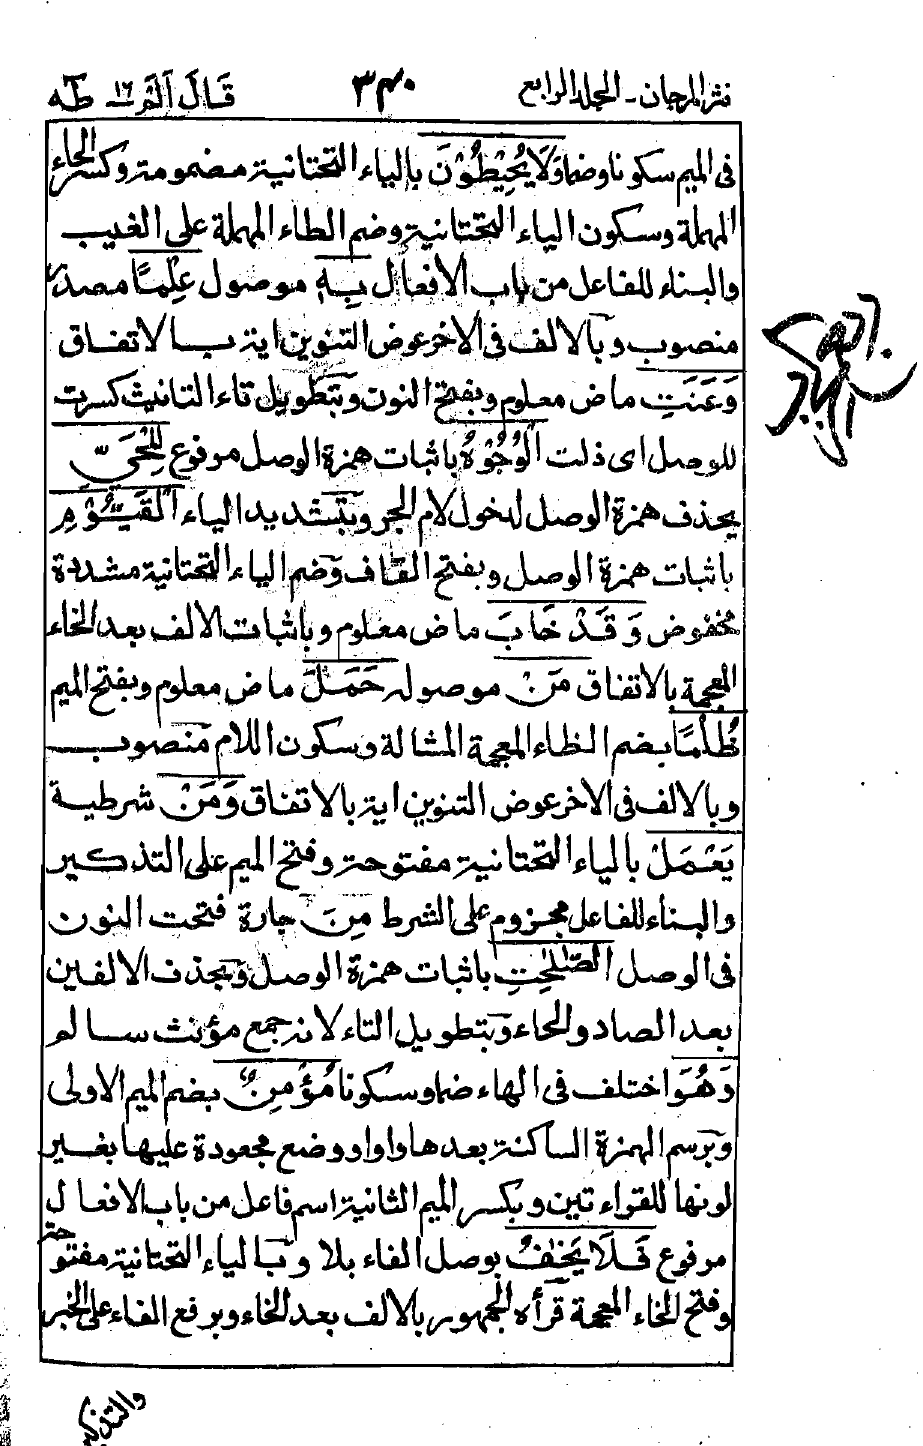 نثر المرجان - المجلد الرابع ٣٤٠ قَالَ اَلَمْ ١٦ طٰهٰ
فى الميم سكونا وضما وَلَا يُحِيْطُوْنَ بالياء التحتانية مضمومة وكسر الحاء
المهملة وسكون الياء التحتانية وضم الطاء المهملة على الغيب
والبناء للفاعل من باب الافعال بِهٖ موصول عِلْمًا مصدر
منصوب وبالالف فى الاخر عوض التنوين اية بالاتفاق
وَعَنَتِ ماض معلوم وبفتح النون وبتطويل تاء التانيث كسرت
للوصل اى ذلت الْوُجُوْهُ باثبات همزة الوصل مرفوع لِلْحَيِّ
بحذف همزة الوصل لدخول لام الجر وبتشديد الياء الْقَيُّوْمِ
باثبات همزة الوصل وبفتح القاف وضم الياء التحتانية مشددة
مخفوض وَقَدْ خَابَ ماض معلوم وباثبات الالف بعد الخاء
المعجمة بالاتفاق مَنْ موصولة حَمَلَ ماض معلوم وبفتح الميم
ظُلْمًا بضم الظاء المعجمة المشالة وسكون اللام منصوب
وبالالف فى الاخر عوض التنوين اية بالاتفاق وَمَنْ شرطية
يَعْمَلْ بالياء التحتانية مفتوحة وفتح الميم على التذكير
والبناء للفاعل مجزوم على الشرط مِنَ جارة فتحت النون
فى الوصل الصّٰلِحٰتِ باثبات همزة الوصل وبحذف الالفين
بعد الصاد والحاء وبتطويل التاء لانه جمع مؤنث سالم
وَهُوَ اختلف فى الهاء ضما وسكونا مُؤْمِنٌ بضم الميم الاولى
وبرسم الهمزة الساكنة بعدها واوا ووضع مجعودة عليها بغير
لونها للقراءتين وبكسر الميم الثانية اسم فاعل من باب الافعال
مرفوع فَلَا يَخٰفُ بوصل الفاء بلا وبالياء التحتانية مفتوحة
وفتح الخاء المعجمة قرأه الجمهور بالالف بعد الخاء وبرفع الفاء على الخبر
والتذكير